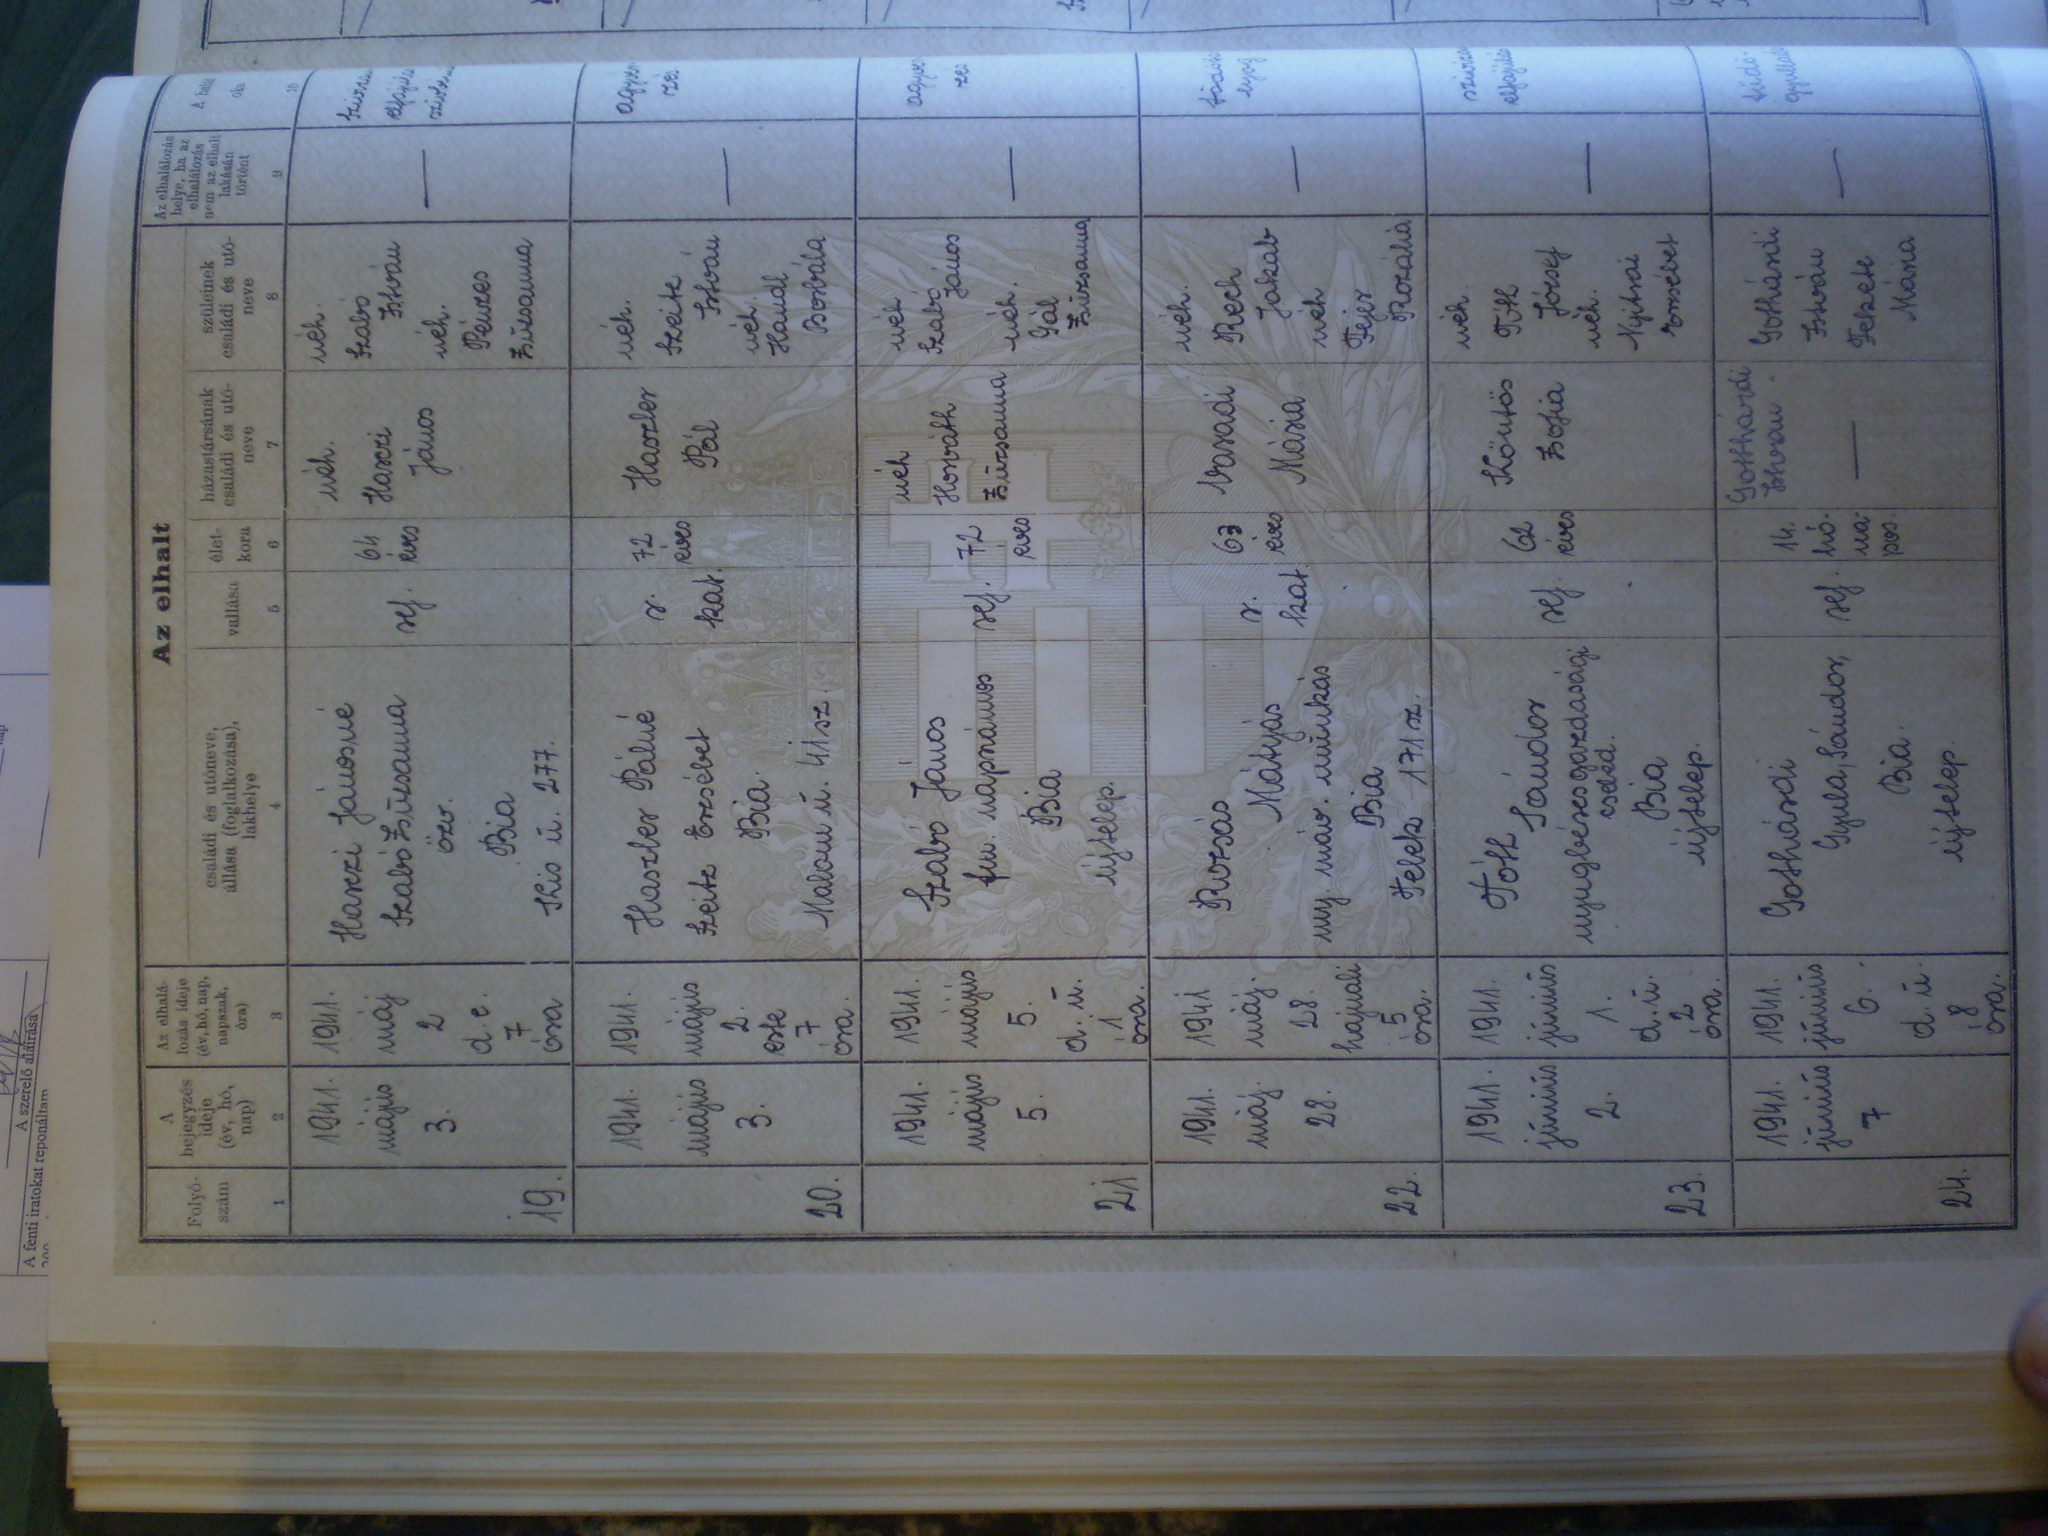 A szerelő aláírása
A fenti iratokat reponáltam
Az elhalt
Folyó-
szám
A
bejegyzés
ideje
(év, hó,
nap)
Az elhalá-
lozás ideje
(év, hó, nap,
napszak,
óra)
családi és utóneve,
állása (foglalkozása),
lakhelye
vallása
élet-
kora
házastársának
családi és utó-
neve
szüleinek
családi és utó-
neve
Az elhalálozás
helye, ha az
elhalálozás
nem az elhalt
lakásán
történt
A halál
oka
1
2
3
4
5
6
7
8
9
10
19.
1941.
május
3.
1941.
máj
2
d. e.
7
óra
Harszi Jánosné
Szabó Zsuzsanna
özv.
Bia
Kis u. 277.
ref.
64
éves
néh.
Harszi
János
néh.
Szabó
István
néh.
Pénzes
Zsuzsanna
—
20.
1941.
május
3.
1941.
május
2.
este
7
óra.
Haszler Pálné
Szeitz Erzsébet
Bia.
Malom u. 41 sz.
r.
kat.
72
éves
Haszler
Pál
néh.
Szeitz
István
néh.
Handl
Borbála
—
21
1941.
május
5.
1941.
május
5.
d. u.
1
óra.
Szabó János
fm. napszámos
Bia
újtelep.
ref.
72
éves
néh
Horváth
Zsuzsanna
néh
Szabó
János
néh.
Gál
Zsuzsanna
—
22.
1941.
máj.
28.
1941
máj.
28.
hajnali
5
óra.
Rozsás
Mátyás
ny. máv. munkás
Bia
Telek 171 sz.
r.
kat.
63
éves
Varadi
Mária
néh.
Rech
Jakab
néh
Fejes
Rozália
—
23.
1941.
június
2.
1941.
június
1.
d. u.
2
óra.
Tóth
Sándor
nyugbéres gazdasági
cseléd.
Bia
újtelep.
ref.
62
éves
Köntös
Zsófia
néh.
Tóth
József
néh.
Nyitrai
Erzsébet
—
24.
1941.
június
7
1941.
június
6.
d. u.
8
óra.
Gothárdi
Gyula, Sándor,
Bia.
újtelep.
ref.
14.
hó-
na-
pos.
Gotthárdi
István.
—
Gothárdi
István
Fekete
Mária
—
tüdő-
gyullad